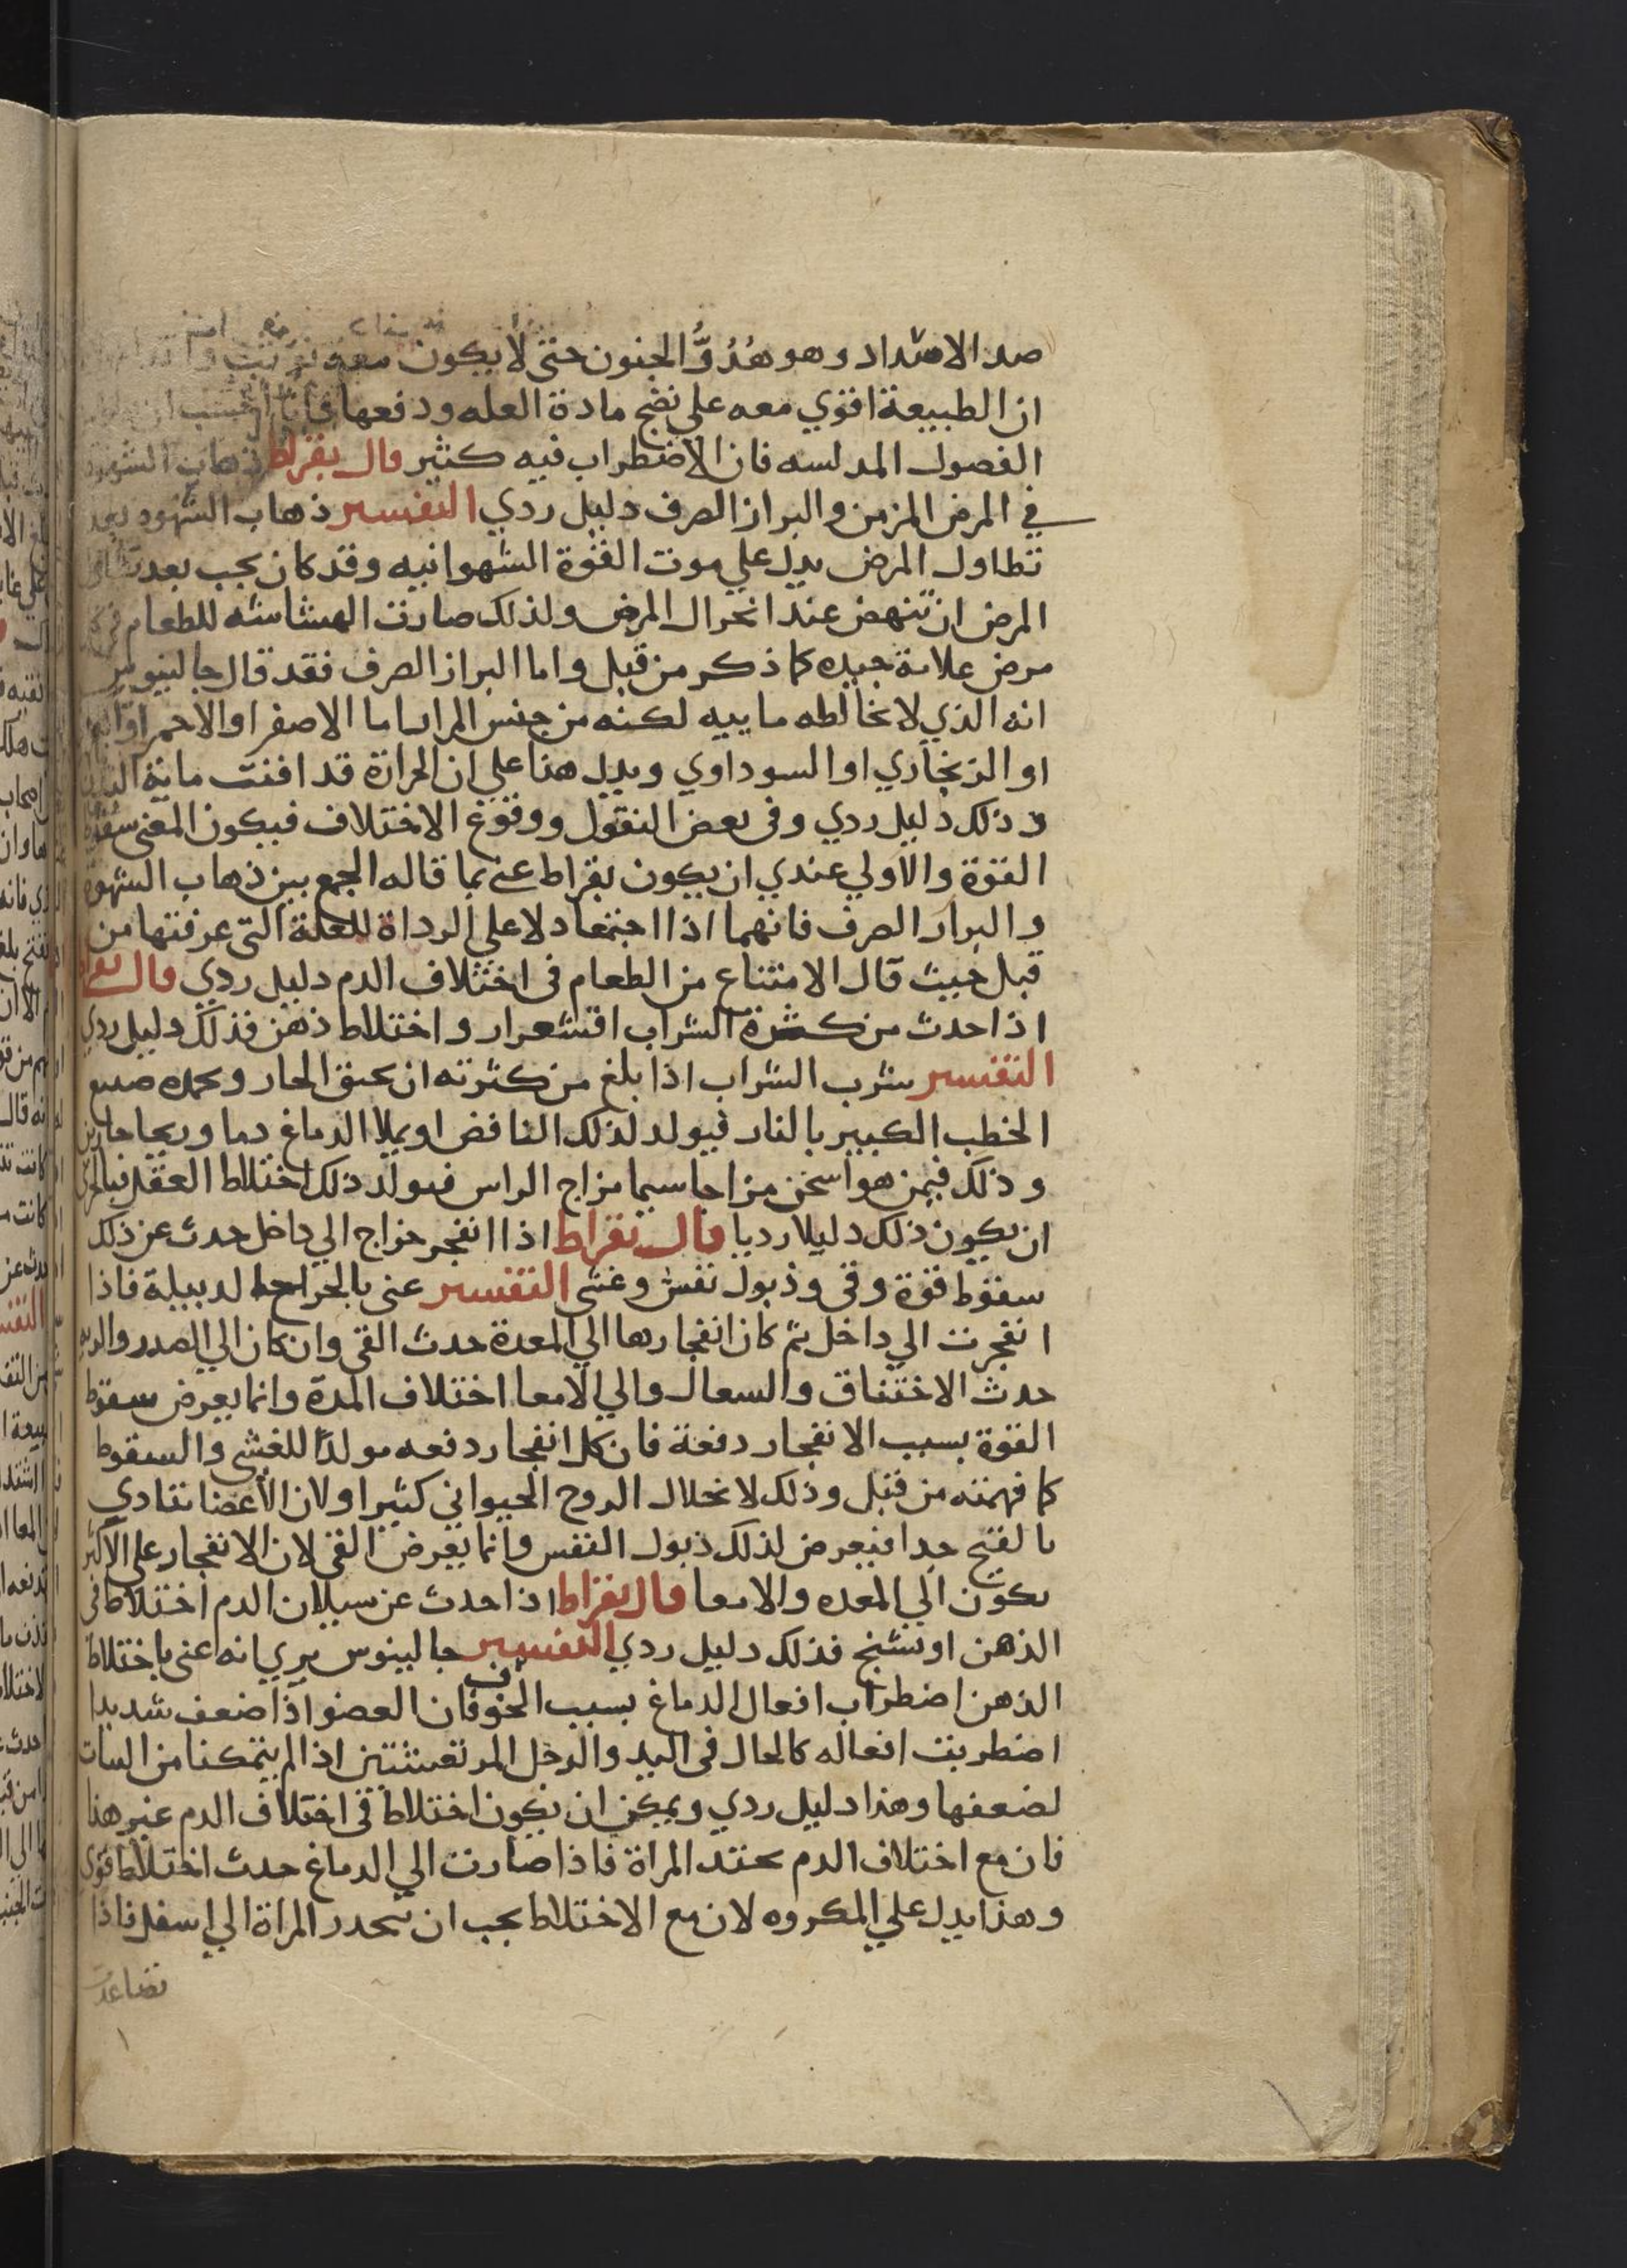 ضد الاشداد وهو هُدُوُّ الجنون حتى لا يكون معه توثب
ان الطبيعة اقوي معه علي نضج مادة العله ودفعها
الفصول المدلسه فان الاضطراب فيه كثير قال بقراط ذهاب الشهوة
في المرض المزمن والبراز الصرف دليل ردي التفسير ذهاب الشهوه بعد
تطاول المرض يدل علي موت القوة الشهوانيه وقد كان يجب بعد
المرض ان تنهض عند انحلال المرض ولذلك صارت الهشاشه للطعام في كل
مرض علامة جيده كما ذكر من قبل واما البراز الصرف فقد قال جالينوس
انه الذي لا يخالطه ماييه لكنه من جنس المرار اما الاصفر او الاحمر او
او الزنجاري او السوداوي ويدل هذا علي ان الحرارة قد افنت مائية البدن
وذلك دليل ردي وفي بعض النقول ووقوع الاختلاف فيكون المعنى سقوط
القوة والاولي عندي ان يكون بقراط عنى بما قاله الجمع بين ذهاب الشهوة
والبراز الصرف فانهما اذا اجتمعا دلا علي الرداة للعلة التي عرفتها من
قبل حيث قال الامتناع من الطعام في اختلاف الدم دليل ردي قال بقراط
اذا حدث من كثرة الشراب اقشعرار واختلاط ذهن فذلك دليل ردي
التفسير شرب الشراب اذا بلغ من كثرته ان يخنق الحار ويخمده صنيع
الحطب الكبير بالنار فيولد لذلك النافض او يملا الدماغ دما وريحا حارين
وذلك فيمن هو اسخن مزاجا سيما مزاج الراس فيولد ذلك اختلاط العقل فبالحري
ان يكون ذلك دليلا رديا قال بقراط اذا انفجر خراج الي داخل حدث عن ذلك
سقوط قوة وقي وذبول نفس وغشي التفسير عنى بالخراج الدبيلة فاذا
انفجرت الي داخل ثم كان انفجارها الي المعدة حدث القي وان كان الي الصدر والريه
حدث الاختناق والسعال والي الامعا اختلاف المدة وانما يعرض سقوط
القوة بسبب الانفجار دفعة فان كل انفجار دفعه مولدا للغشي والسقوط
كما فهمته من قبل وذلك لانحلال الروح الحيواني كثيرا ولان الاعضا تتادي
بالقيح جدا فيعرض لذلك ذبول النفس وانما يعرض القي لان الانفجار علي الاكثر
يكون الي المعده والامعا قال بقراط اذا حدث عن سيلان الدم اختلاط في
الذهن او تشنج فذلك دليل ردي التفسير جالينوس يري انه عنى باختلاط
الذهن اضطراب افعال الدماغ بسبب الخوف فان العضو اذا ضعف شديدا
اضطربت افعاله كالحال في اليد والرجل المرتعشتين اذا لم يتمكنا من الثبات
لضعفها وهذا دليل ردي ويمكن ان يكون اختلاط في اختلاف الدم غير هذا
فان مع اختلاف الدم يحتد المرة فاذا صارت الي الدماغ حدث اختلاط قوي
وهذا يدل علي المكروه لان مع الاختلاط يجب ان تنحدر المراة الي اسفل فاذا
تصاعدت